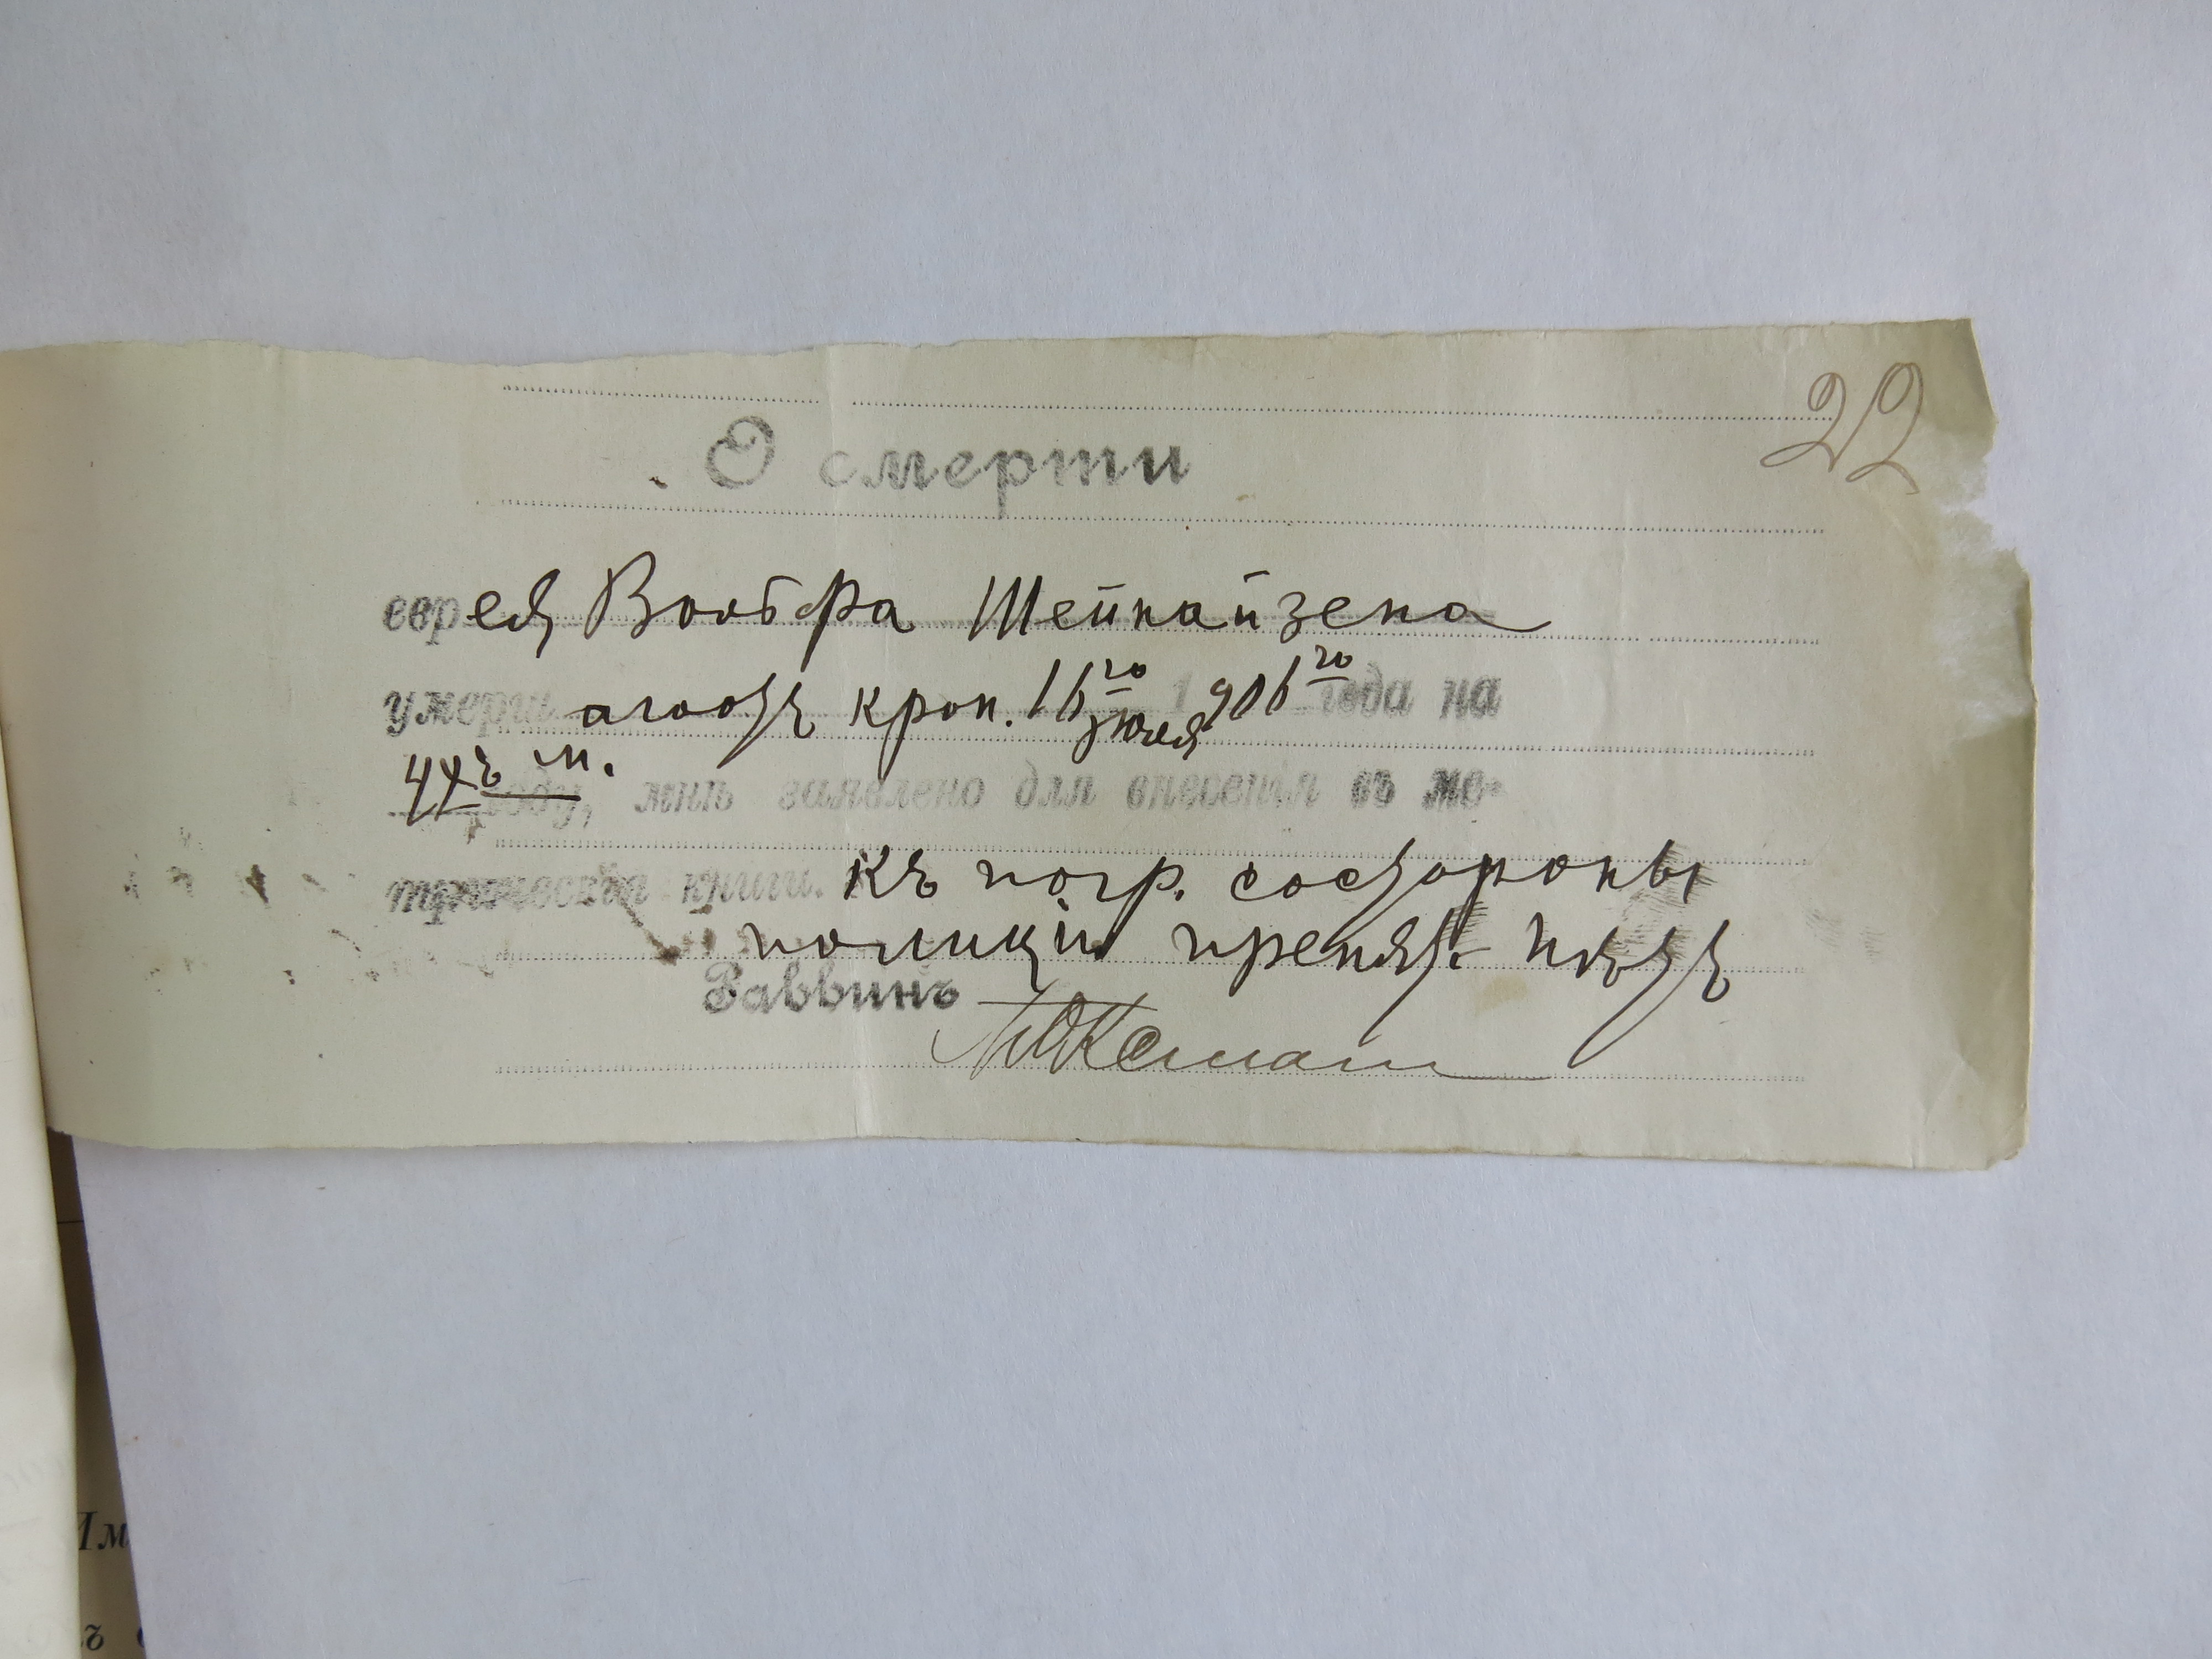 22
О смерти
еврея Вольфа Шейнайзена
умерш аго отъ кров. 16го Іюля 1906го года на
44хъ м. году, мнѣ заявлено для внесенія въ ме-
трическія книги. Къ погр. со стороны
полиціи препят. нѣтъ
Раввинъ
Им
ъ